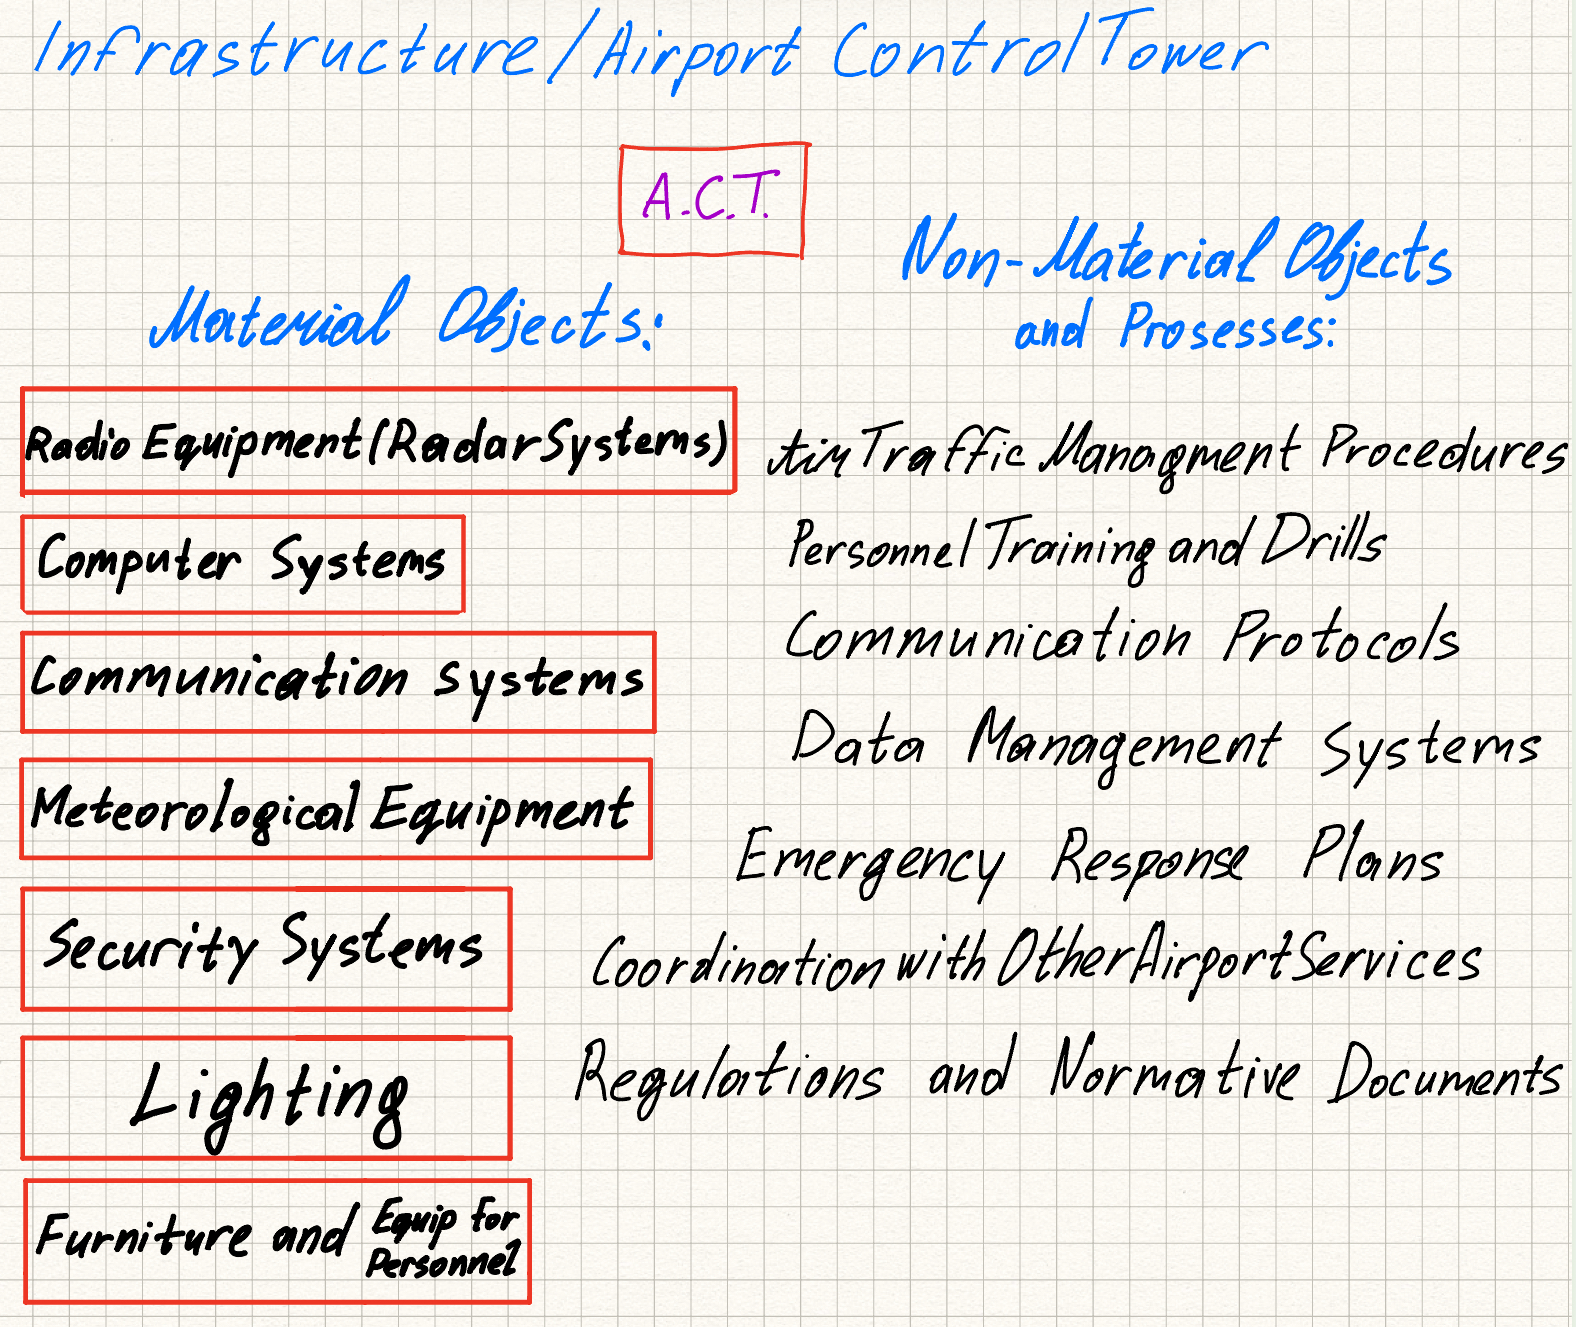 Infrastructure/Airport Control Tower
A.C.T.
Material Objects:
Radio Equipment (Radar Systems)
Computer Systems
Communication systems
Meteorological Equipment
Security Systems
Lighting
Furniture and Equip for
Personnel
Non-Material Objects
and Prosesses:
Air Traffic Managment Procedures
Personnel Training and Drills
Communication Protocols
Data Management Systems
Emergency Response Plans
Coordination with Other Airport Services
Regulations and Normative Documents